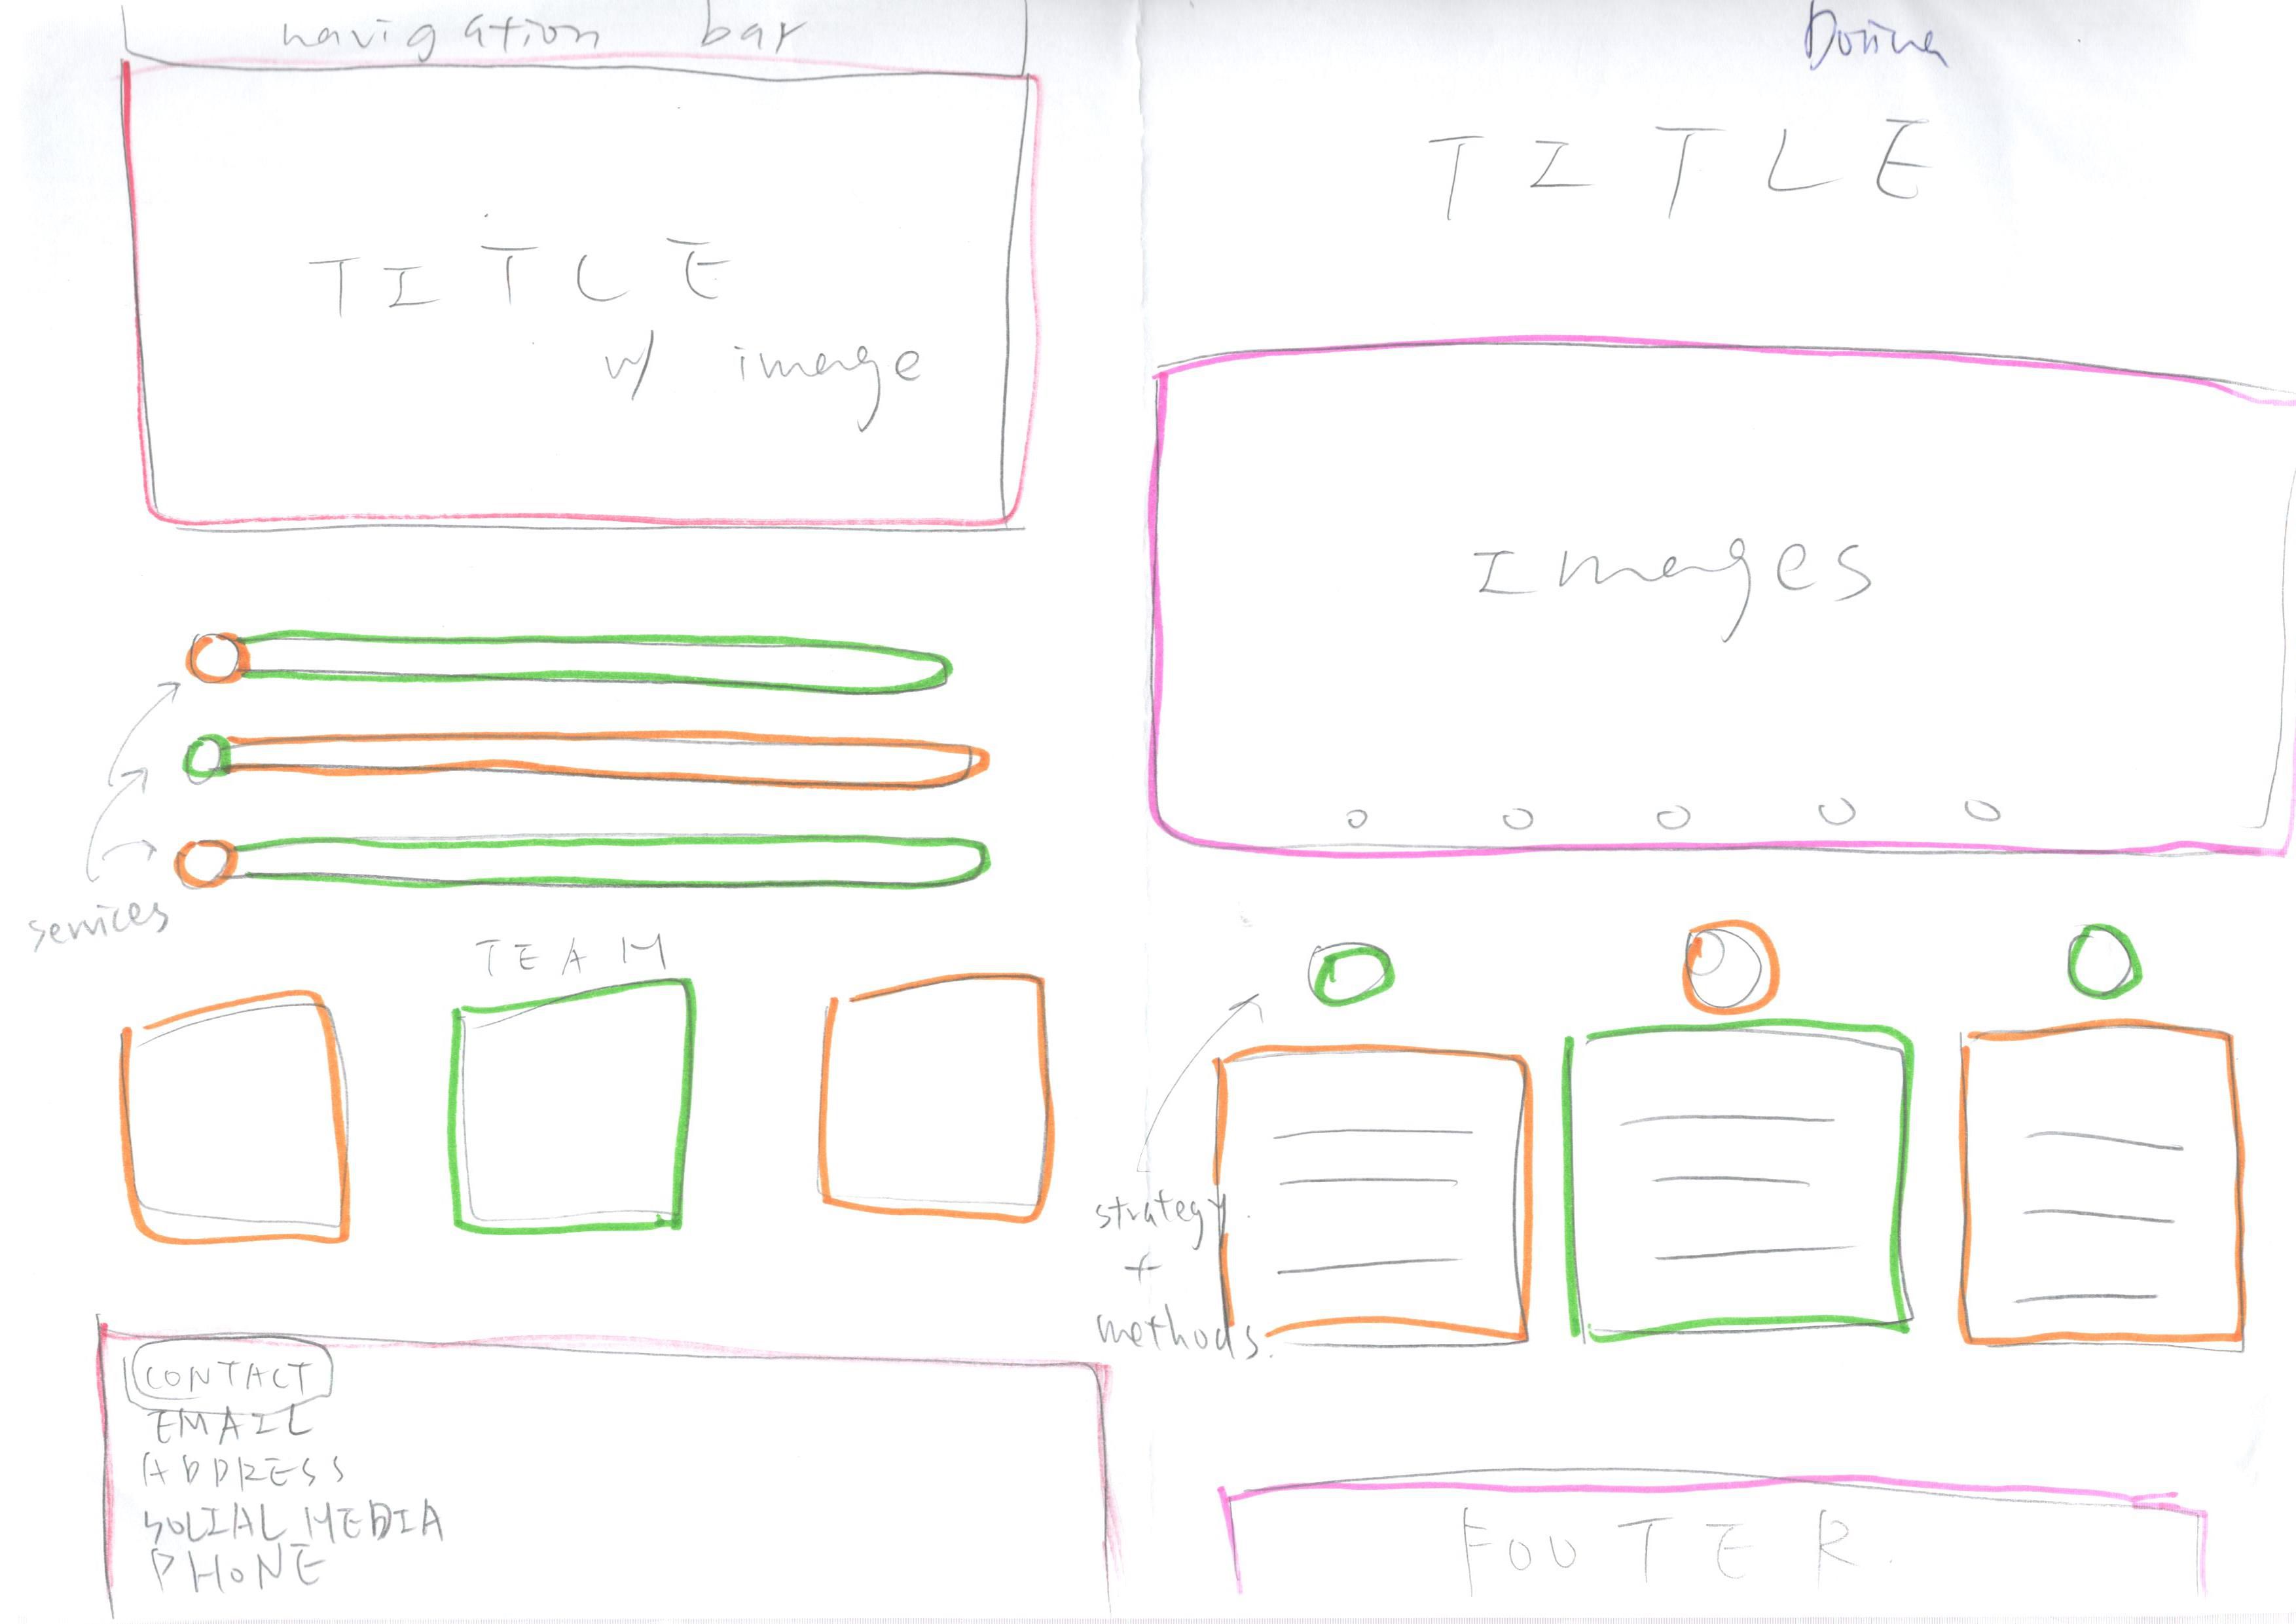 navigation bar
TITLE
w/ image
services
TEAM
CONTACT
EMAIL
ADDRESS
SOCIAL MEDIA
PHONE
TITLE
Images
strategy
+
methods.
FOOTER